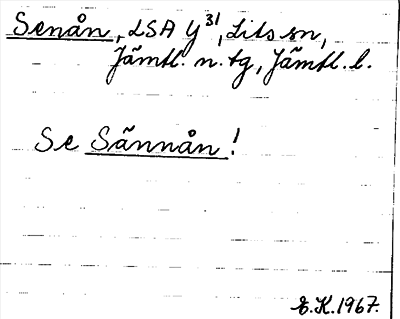 Senån, LSA Y³¹, Lits sn,
Jämtl. n. tg, Jämtl. l.
Se Sännån!
E.K.1967.